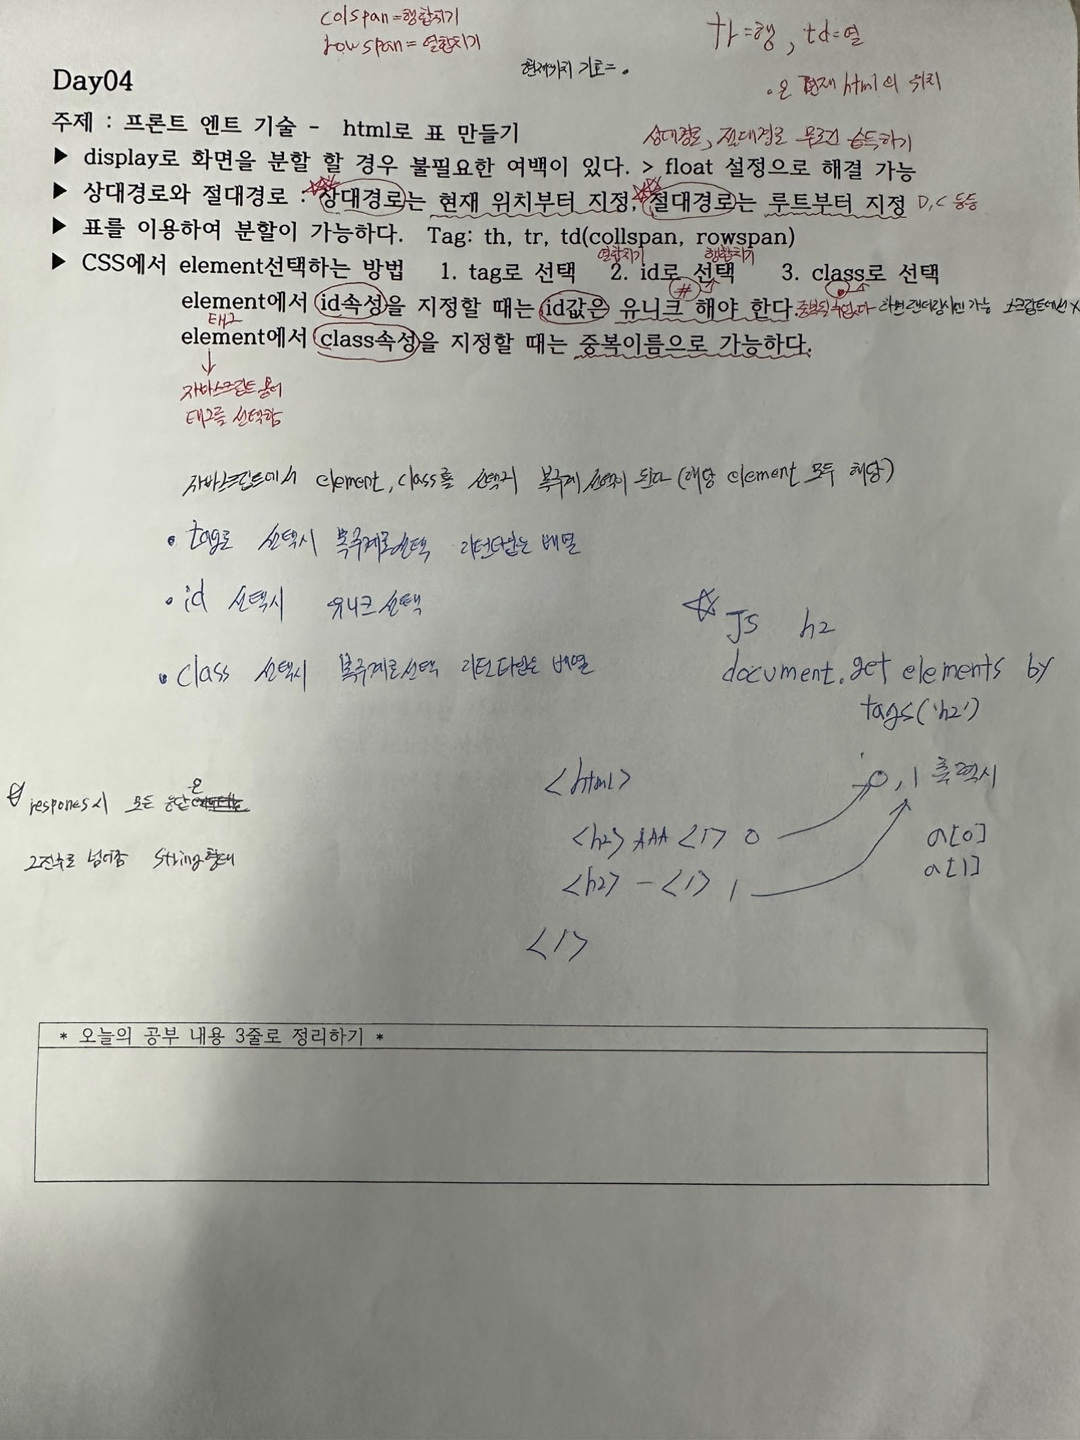 colspan=행합치기
rowspan=열합치기
tr=행, td=열
현재위치 기호= .
.은 현재 html의 위치
Day04
주제 : 프론트 엔트 기술 - html로 표 만들기
상대경로, 절대경로 무조건 습득하기
▶ display로 화면을 분할 할 경우 불필요한 여백이 있다. > float 설정으로 해결 가능
▶ 상대경로와 절대경로 : 상대경로는 현재 위치부터 지정, 절대경로는 루트부터 지정 D,C 등등
▶ 표를 이용하여 분할이 가능하다. Tag: th, tr, td(collspan, rowspan)
열합치기 행합치기
▶ CSS에서 element선택하는 방법 1. tag로 선택 2. id로 선택 3. class로 선택
# .
element에서 id속성을 지정할 때는 id값은 유니크 해야 한다.
태그
element에서 class속성을 지정할 때는 중복이름으로 가능하다.
자바스크립트 용어
태그를 선택함
자바스크립트에서 element, class를 선택시 복수개 선택이 된다 (해당 element 모두 해당)
• tag로 선택시 복수개로선택 리턴타입은 배열
• id 선택시 유니크 선택
• class 선택시 복수개로선택 리턴타입은 배열
☆ JS h2
document.get elements by
tags('h2')
☆ respones시 모든 응답은
2진수로 넘어감 String형태
<html>
0, 1 출력시
<h2> AAA </> 0
a[0]
<h2> - </> 1
a[1]
</>
* 오늘의 공부 내용 3줄로 정리하기 *